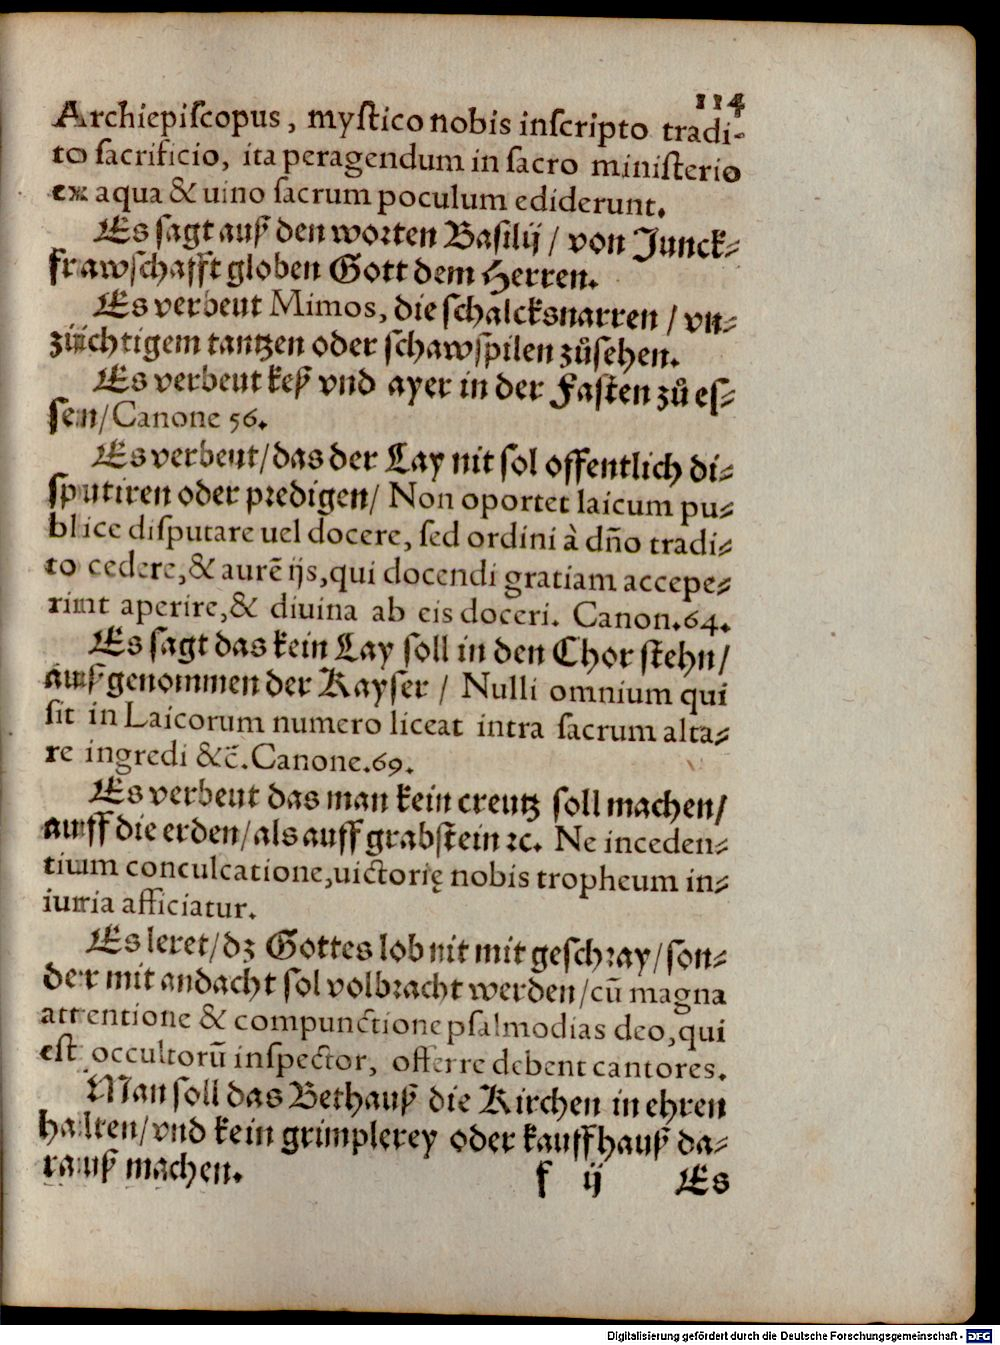 114
Archiepiſcopus, myſtico nobis inſcripto tradi-
to ſacrificio, ita peragendum in ſacro miniſterio
ex aqua & uino ſacrum poculum ediderunt.
Es ſagt auß den worten Baſilij / von Junck⸗
frawſchafft globen Gott dem Herren.
Es verbeut Mimos, die ſchalcksnarren / vn⸗
züchtigem tantzen oder ſchawſpilen zůſehen.
Es verbeut keß vnd ayer in der Faſten zů eſ⸗
ſen / Canone 56.
Es verbeut / das der Lay nit ſol offentlich di⸗
ſputiren oder predigen / Non oportet laicum pu⸗
blice diſputare uel docere, ſed ordini à dño tradi⸗
to cedere, & aurē ijs, qui docendi gratiam accepe⸗
rint aperire, & diuina ab eis doceri. Canon. 64.
Es ſagt das kein Lay ſoll in den Chor ſtehn /
außgenommen der Kayſer / Nulli omnium qui
ſit in Laicorum numero liceat intra ſacrum alta⸗
re ingredi &c̄. Canone. 69.
Es verbeut das man kein creutz ſoll machen /
auff die erden / als auff grabſtein ꝛc. Ne inceden⸗
tium conculcatione, uictorię nobis tropheum in⸗
iuria afficiatur.
Es leret / dz Gottes lob nit mit geſchꝛay / ſon⸗
der mit andacht ſol volbꝛacht werden / cū magna
attentione & compunctione pſalmodias deo, qui
eſt occultorū inſpector, offerre debent cantores.
Man ſoll das Bethauß die Kirchen in ehren
halten / vnd kein grimplerey oder kauffhauß da⸗
rauß machen.
f ij Es
Digitalisierung gefördert durch die Deutsche Forschungsgemeinschaft - DFG